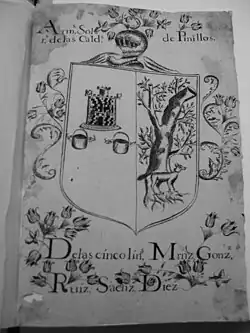 Arms. Sola
r. de las Cald.s de Pinillos.
De las cinco lin.s Mrnz. Gonz.
Ruiz. Saenz. Diez